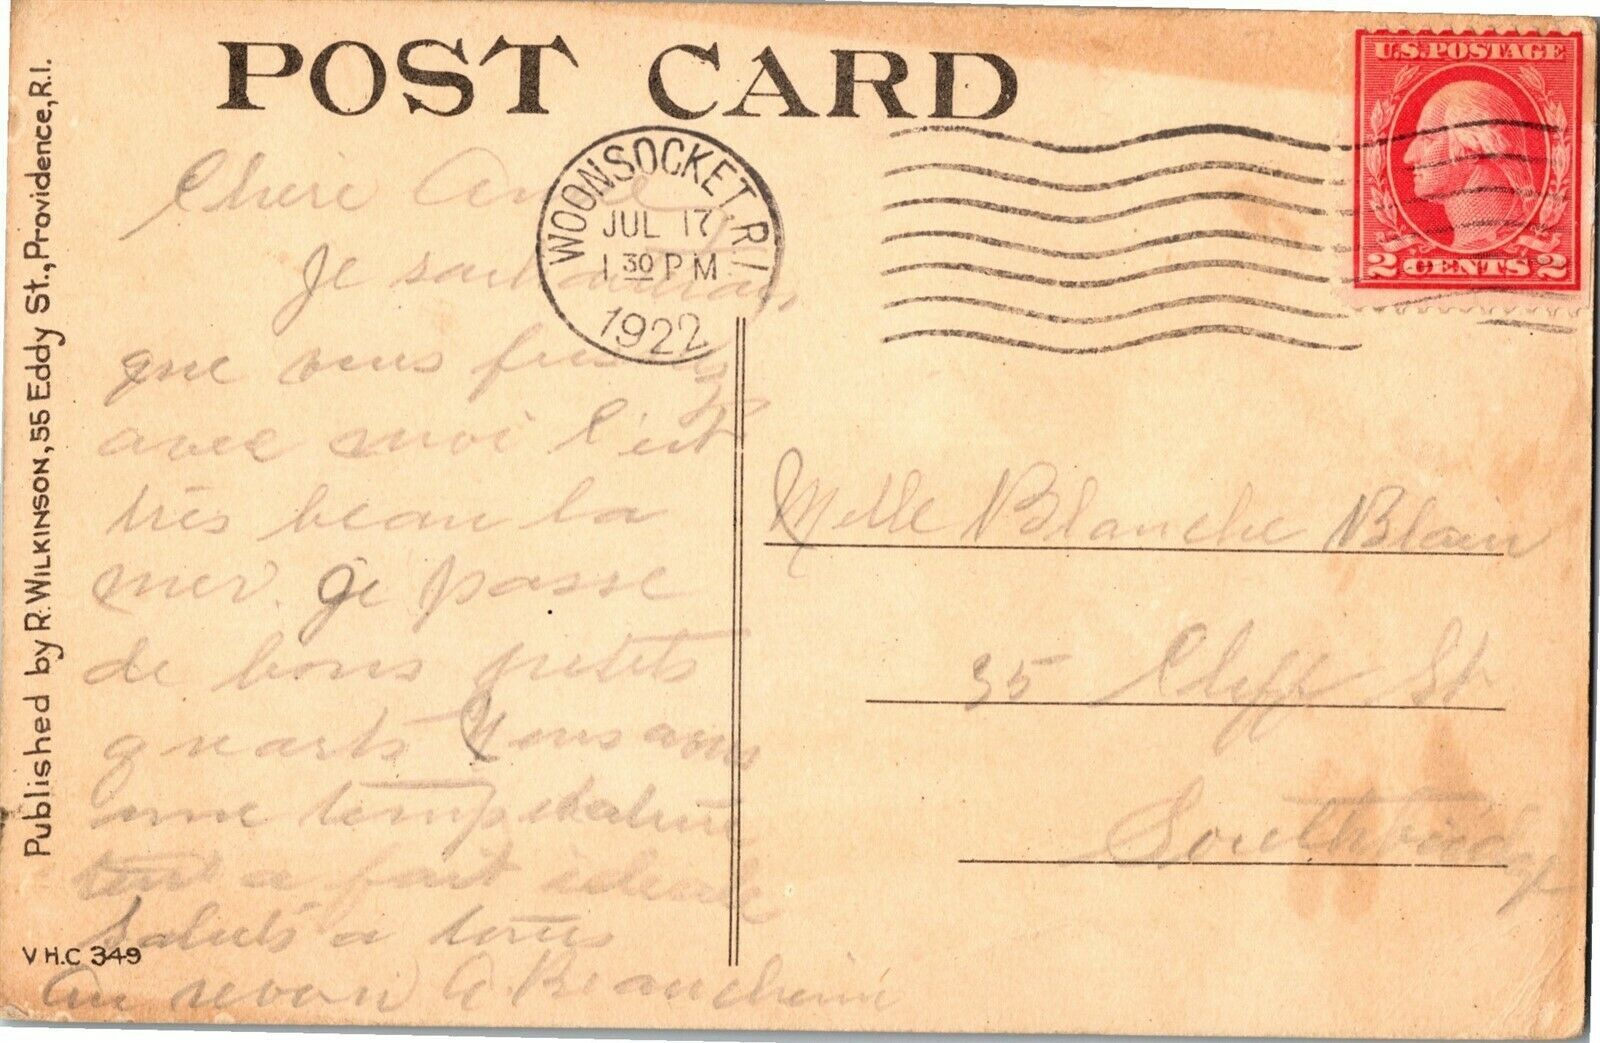 POST CARD
U.S. POSTAGE
2 CENTS 2
WOONSOCKET, R.I.
JUL 17
1 30 PM
1922
Chère Amie
Je souhaiterais
que vous fussiez
avec moi c'est
très beau la
mer. Je passe
de bons petits
quarts Nous avons
une température
tout a fait idéale
Saluts a tous
Au revoir A. Beauchemin
Melle Blanche Blain
35 Cliff St
Southbridge
Published by R. WILKINSON, 55 Eddy St., Providence, R.I.
V H.C 349